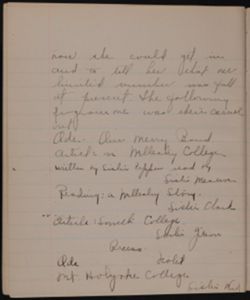 now she could get in
and to tell her that our
limited number was full
at present. The following
programme was then carried
out:
Ode. Our Merry Band
Article: on Wellesley College
written by Sister Tipper read by
Sister
Reading: a Wellesley Story.
Sister Clark
Article: Smith College
Sister
Recess
Ode
Mt. Holyoke College
Sister